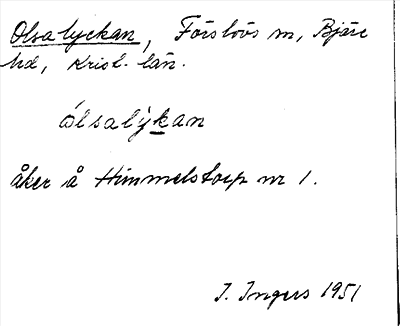 Olsalyckan, Förslövs sn, Bjäre
hd, Krist. län.
ólsalỳkan
åker å Himmelstorp nr 1.
I. Ingers 1951